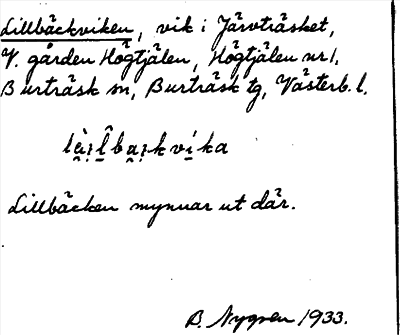 Lillbäckviken, vik i Järvträsket,
V. gården Högtjälen, Högtjälen nr 1,
Burträsk sn, Burträsk tg, Västerb. l.
Lillbäcken mynnar ut där.
B. Nygren 1933.